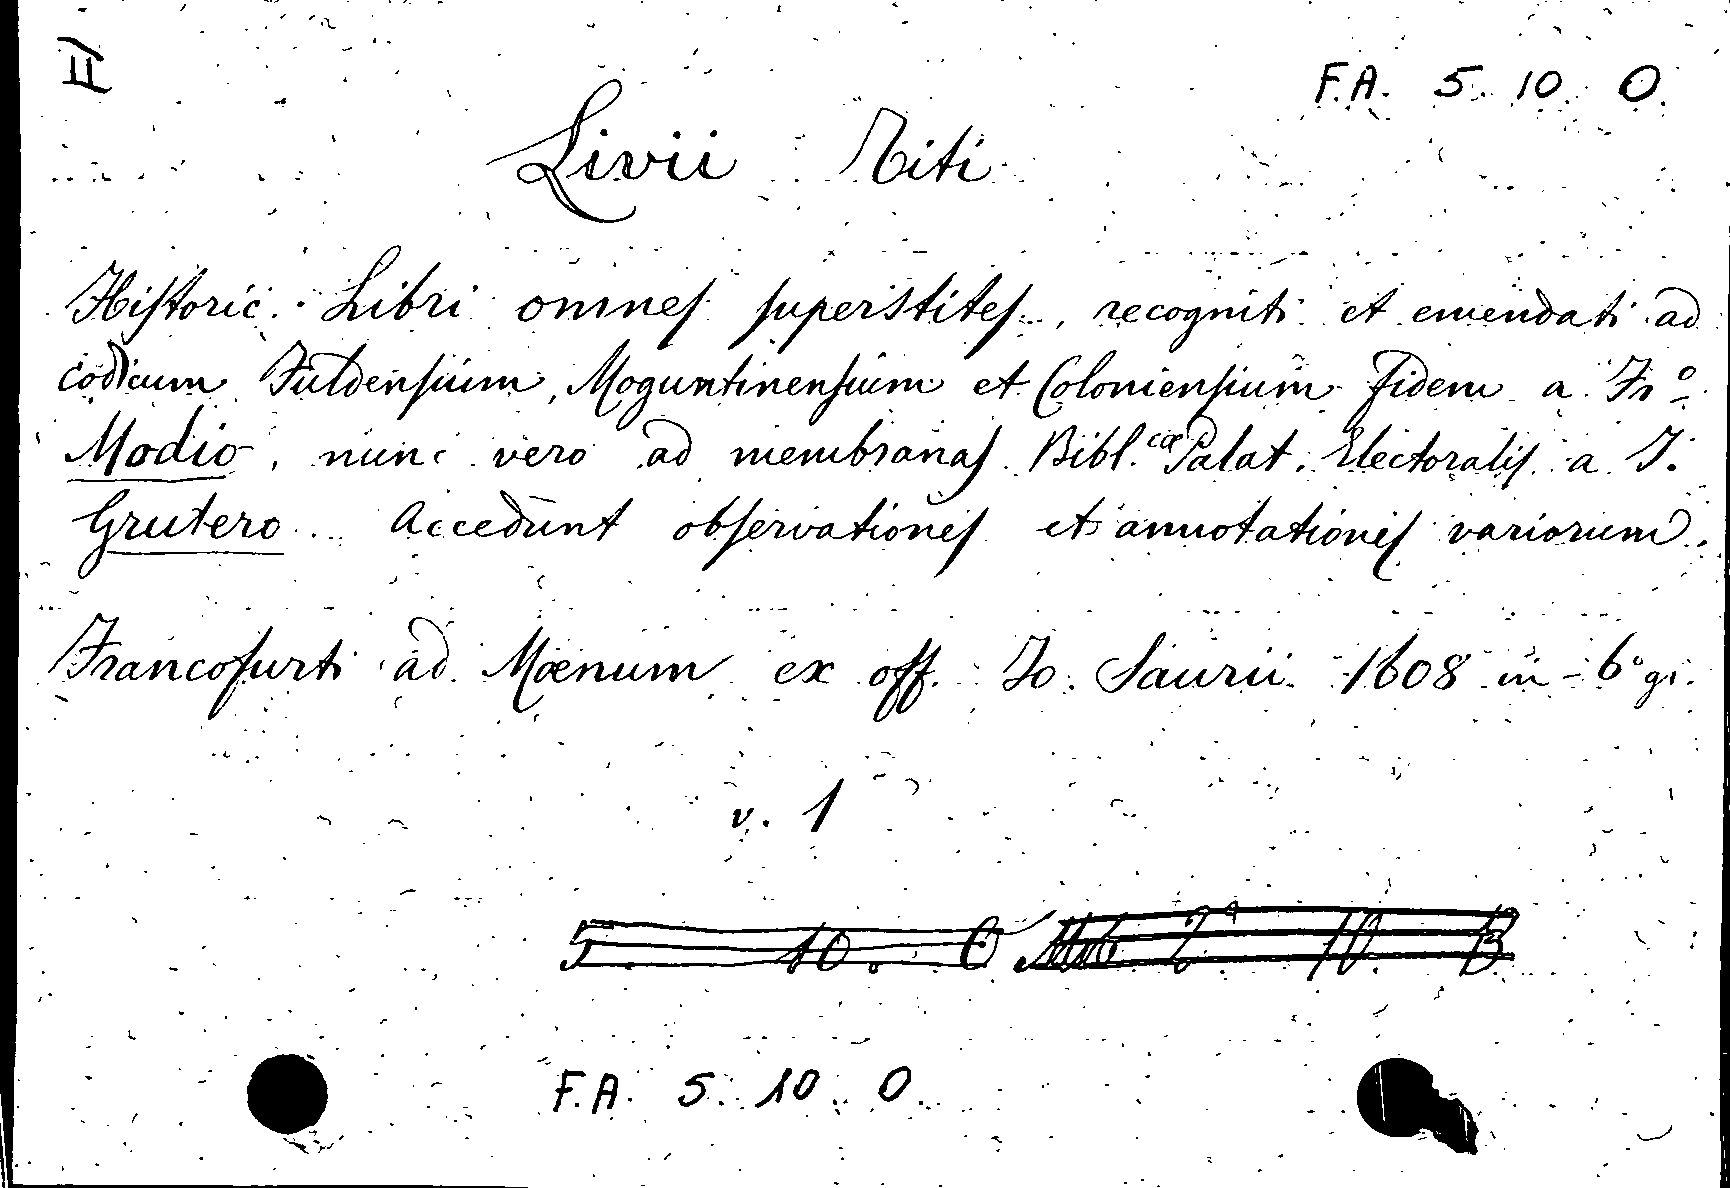 II)
F.A. 5. 10. O.
Livii Titi
Historic. Libri omnes superstites, recogniti et emendati ad
codicum Fuldensium, Moguntinensium et Coloniensium fidem a Frº
Modio, nunc vero ad membranas Bibl.cæ Palat. Electoralis a J.
Grutero. Accedunt observationes et annotationes variorum.
Francofurti ad Mœnum ex off. Jo. Saurii. 1608 in-6º gr.
v. 1
5. 10. O 2ª 10. B
F.A. 5. 10 O.